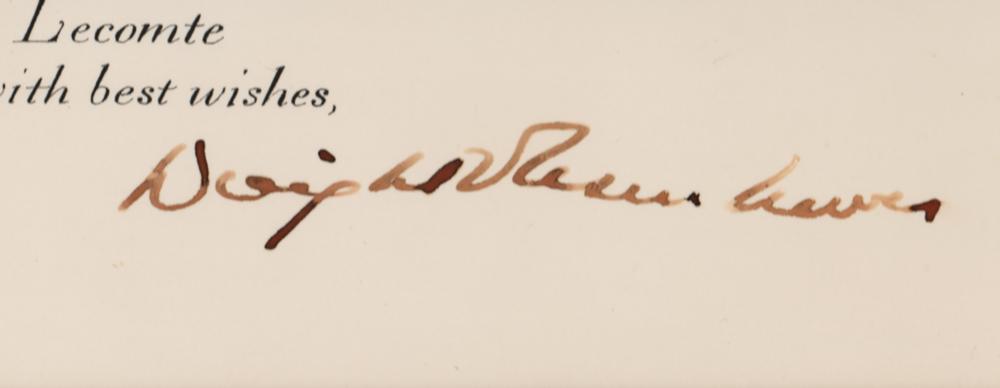 Lecomte
with best wishes,
Dwight D. Eisenhower